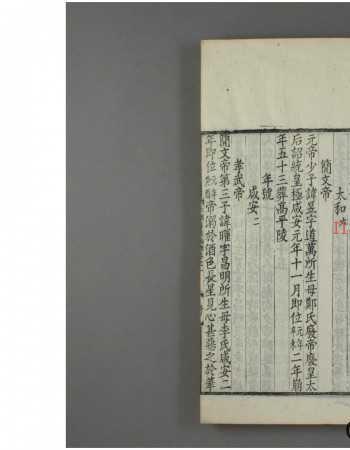 太和
簡文帝
元帝少子諱昱字道萬所生母鄭氏廢帝廢皇太
后詔統皇極咸安元年十一月即位元年辛未二年崩
年五十三葬高平陵
年號
咸安二
孝武帝
簡文帝第三子諱曜字昌明所生母李氏咸安二
年即位帝溺於酒色長星見心甚惡之於華